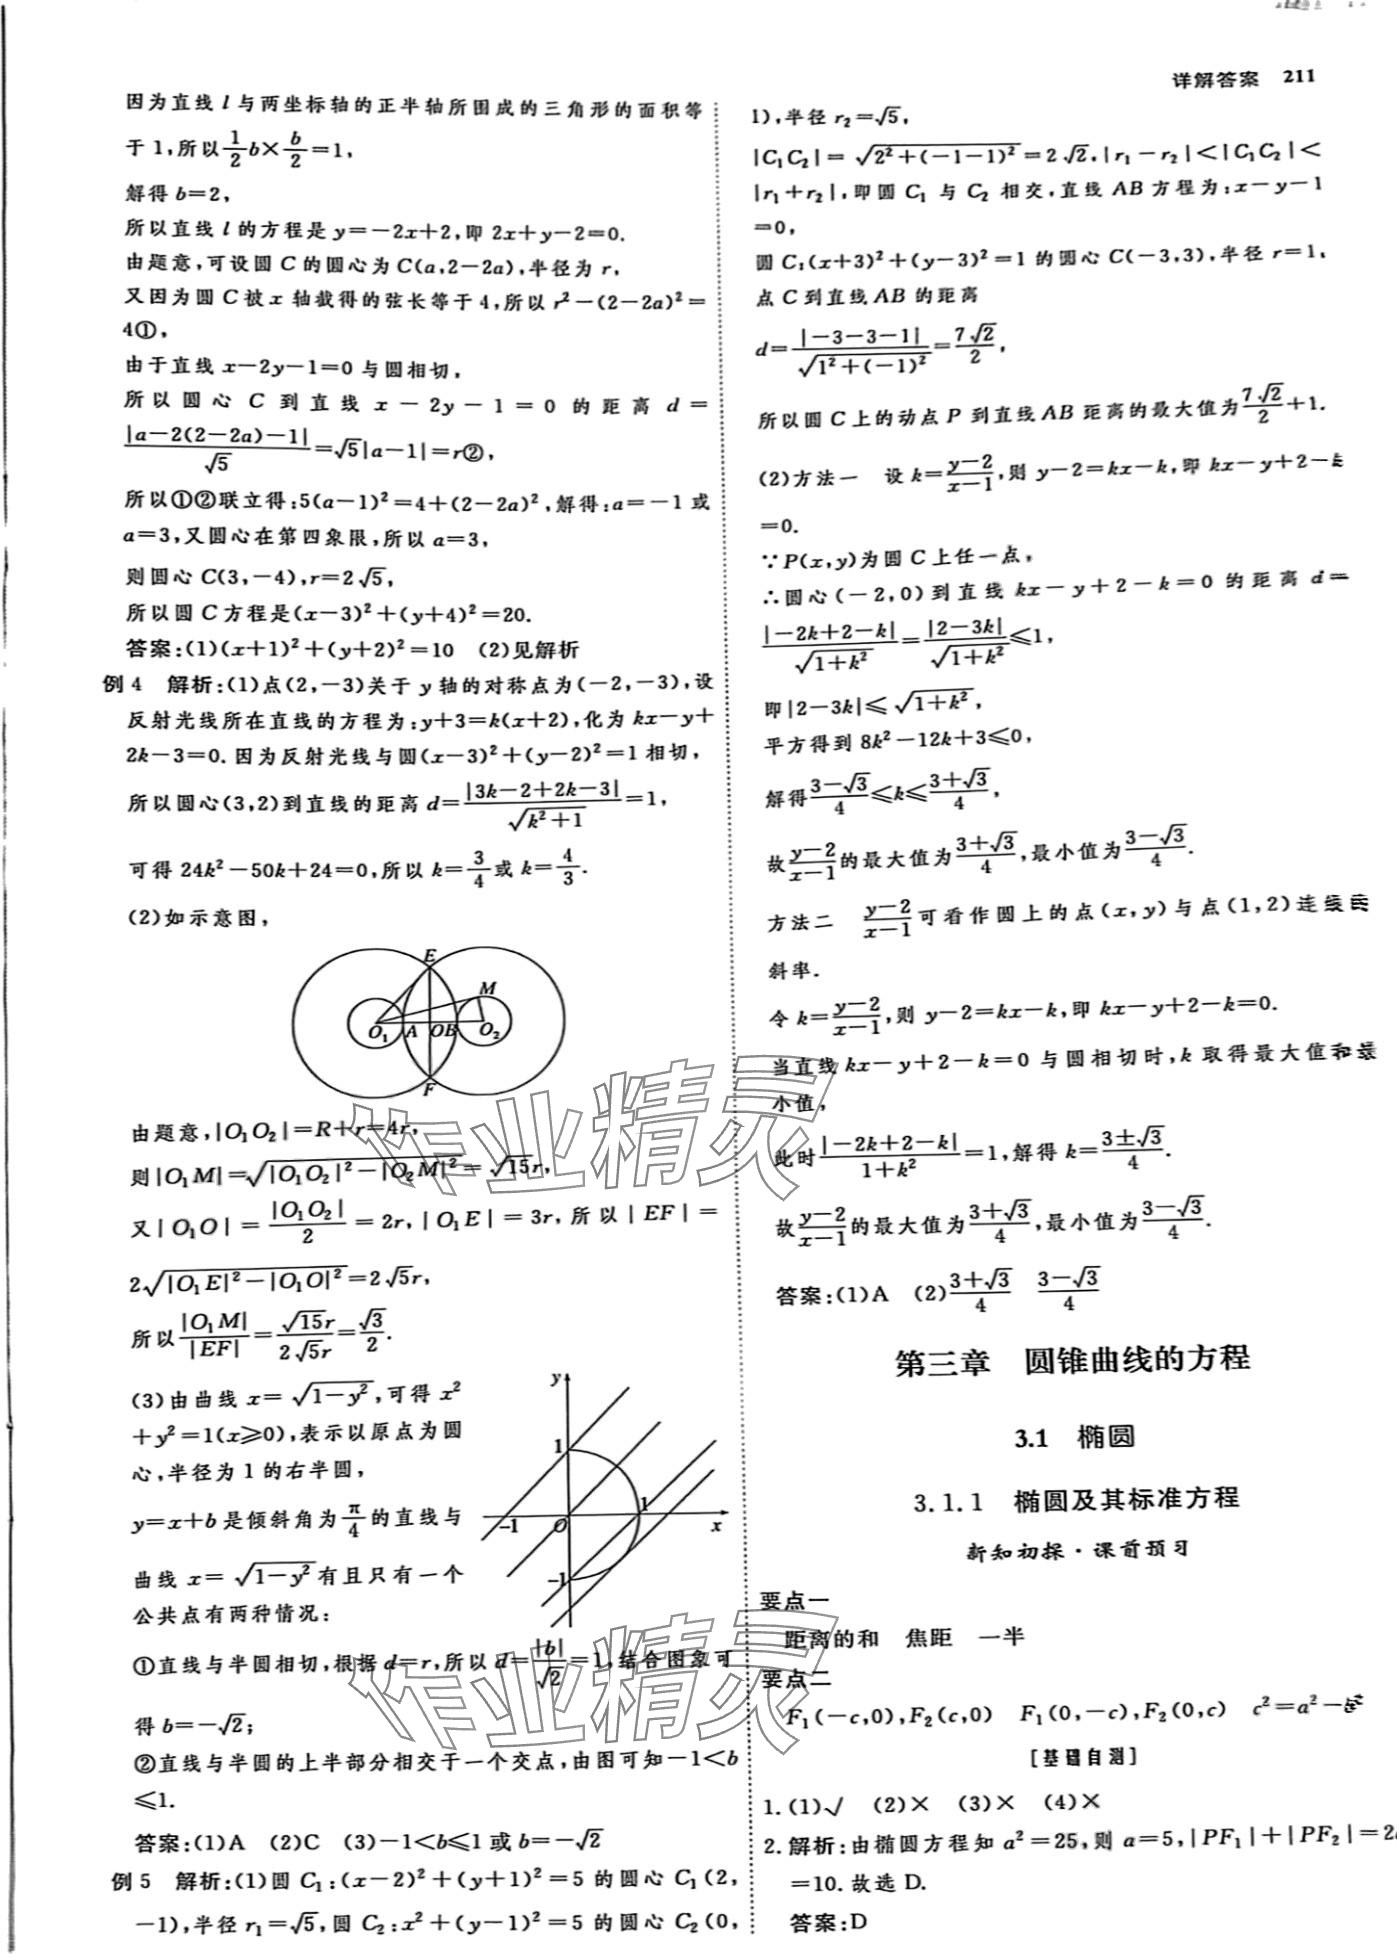 详解答案 211
因为直线 l 与两坐标轴的正半轴所围成的三角形的面积等
于 1,所以\frac{1}{2}b×\frac{b}{2}=1,
解得 b=2,
所以直线 l 的方程是 y=-2x+2,即 2x+y-2=0.
由题意,可设圆 C 的圆心为 C(a,2-2a),半径为 r,
又因为圆 C 被 x 轴截得的弦长等于 4,所以 r²-(2-2a)²=
4①,
由于直线 x-2y-1=0 与圆相切,
所以圆心 C 到直线 x-2y-1=0 的距离 d=
\frac{|a-2(2-2a)-1|}{√5}=√5|a-1|=r②,
所以①②联立得:5(a-1)²=4+(2-2a)²,解得:a=-1 或
a=3,又圆心在第四象限,所以 a=3,
则圆心 C(3,-4),r=2√5,
所以圆 C 方程是(x-3)²+(y+4)²=20.
答案:(1)(x+1)²+(y+2)²=10 (2)见解析
例 4 解析:(1)点(2,-3)关于 y 轴的对称点为(-2,-3),设
反射光线所在直线的方程为:y+3=k(x+2),化为 kx-y+
2k-3=0.因为反射光线与圆(x-3)²+(y-2)²=1 相切,
所以圆心(3,2)到直线的距离 d=\frac{|3k-2+2k-3|}{√(k²+1)}=1,
可得 24k²-50k+24=0,所以 k=\frac{3}{4}或 k=\frac{4}{3}.
(2)如示意图,
E
M
O₁ A O B O₂
F
由题意,|O₁O₂|=R+r=4r,
则|O₁M|=√(|O₁O₂|²-|O₂M|²)=√15r,
又|O₁O|=\frac{|O₁O₂|}{2}=2r,|O₁E|=3r,所以|EF|=
2√(|O₁E|²-|O₁O|²)=2√5r,
所以\frac{|O₁M|}{|EF|}=\frac{√15r}{2√5r}=\frac{√3}{2}.
(3)由曲线 x=√(1-y²),可得 x²
+y²=1(x≥0),表示以原点为圆
心,半径为 1 的右半圆,
y=x+b 是倾斜角为\frac{π}{4}的直线与
曲线 x=√(1-y²)有且只有一个
公共点有两种情况:
y
1
-1 O 1 x
-1
①直线与半圆相切,根据 d=r,所以 d=\frac{|b|}{√2}=1,结合图象可
得 b=-√2;
②直线与半圆的上半部分相交于一个交点,由图可知-1<b
≤1.
答案:(1)A (2)C (3)-1<b≤1 或 b=-√2
例 5 解析:(1)圆 C₁:(x-2)²+(y+1)²=5 的圆心 C₁(2,
-1),半径 r₁=√5,圆 C₂:x²+(y-1)²=5 的圆心 C₂(0,
1),半径 r₂=√5,
|C₁C₂|=√(2²+(-1-1)²)=2√2,|r₁-r₂|<|C₁C₂|<
|r₁+r₂|,即圆 C₁ 与 C₂ 相交,直线 AB 方程为:x-y-1
=0,
圆 C:(x+3)²+(y-3)²=1 的圆心 C(-3,3),半径 r=1,
点 C 到直线 AB 的距离
d=\frac{|-3-3-1|}{√(1²+(-1)²)}=\frac{7√2}{2},
所以圆 C 上的动点 P 到直线 AB 距离的最大值为\frac{7√2}{2}+1.
(2)方法一 设 k=\frac{y-2}{x-1},则 y-2=kx-k,即 kx-y+2-k
=0.
∵P(x,y)为圆 C 上任一点,
∴圆心(-2,0)到直线 kx-y+2-k=0 的距离 d=
\frac{|-2k+2-k|}{√(1+k²)}=\frac{|2-3k|}{√(1+k²)}≤1,
即|2-3k|≤√(1+k²),
平方得到 8k²-12k+3≤0,
解得\frac{3-√3}{4}≤k≤\frac{3+√3}{4},
故\frac{y-2}{x-1}的最大值为\frac{3+√3}{4},最小值为\frac{3-√3}{4}.
方法二 \frac{y-2}{x-1}可看作圆上的点(x,y)与点(1,2)连线的
斜率.
令 k=\frac{y-2}{x-1},则 y-2=kx-k,即 kx-y+2-k=0.
当直线 kx-y+2-k=0 与圆相切时,k 取得最大值和最
小值,
此时\frac{|-2k+2-k|}{1+k²}=1,解得 k=\frac{3±√3}{4}.
故\frac{y-2}{x-1}的最大值为\frac{3+√3}{4},最小值为\frac{3-√3}{4}.
答案:(1)A (2)\frac{3+√3}{4} \frac{3-√3}{4}
第三章 圆锥曲线的方程
3.1 椭圆
3.1.1 椭圆及其标准方程
新知初探·课前预习
要点一
距离的和 焦距 一半
要点二
F₁(-c,0),F₂(c,0) F₁(0,-c),F₂(0,c) c²=a²-b²
[基础自测]
1.(1)√ (2)× (3)× (4)×
2.解析:由椭圆方程知 a²=25,则 a=5,|PF₁|+|PF₂|=2a
=10.故选 D.
答案:D
作业精灵
作业精灵